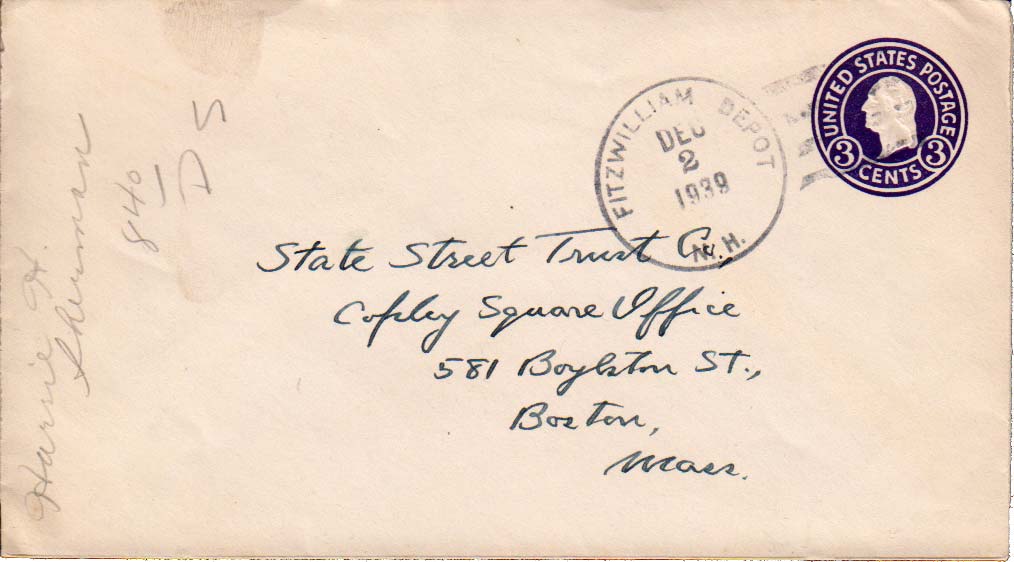 UNITED STATES POSTAGE
3 CENTS 3
FITZWILLIAM DEPOT
DEC
2
1939
N.H.
State Street Trust Co.,
Copley Square Office
581 Boylston St.,
Boston,
Mass.
Harrie H.
Shumman
840
D S